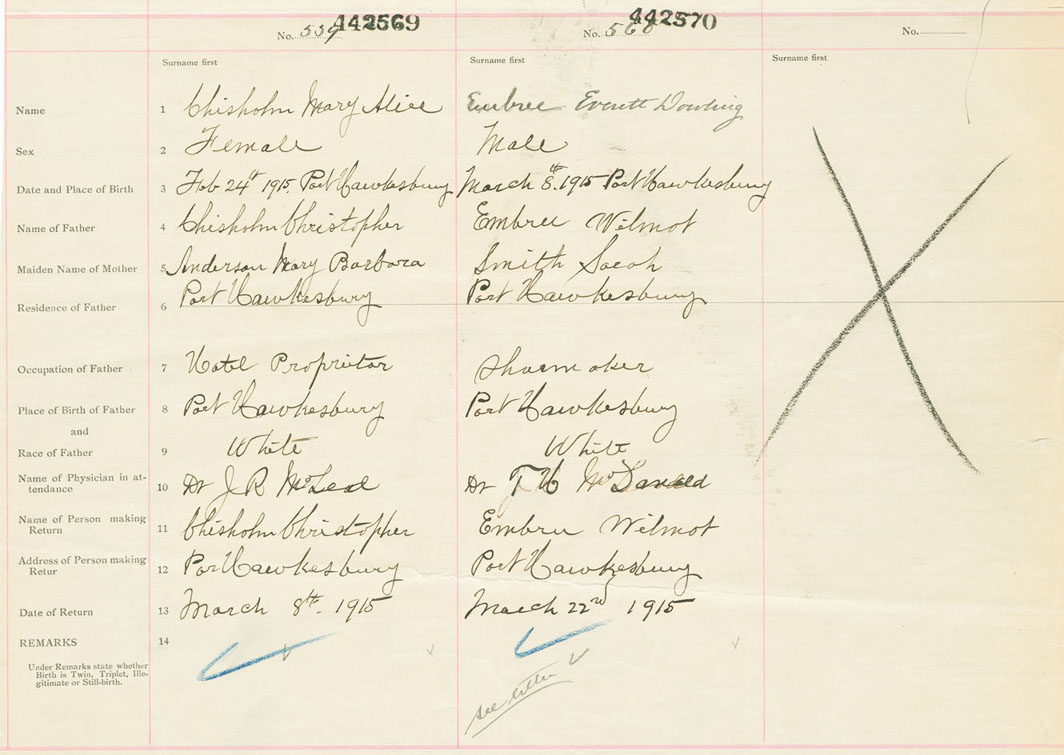 442569 442570
No. 559 No. 560 No.
Surname first Surname first Surname first
Name 1 Chisholm Mary Alice Embree Everett Dowling
Sex 2 Female Male
Date and Place of Birth 3 Feb 24th 1915. Port Hawkesbury March 8th. 1915 Port Hawkesbury
Name of Father 4 Chisholm Christopher Embree Wilmot
Maiden Name of Mother 5 Anderson Mary Barbara Smith Sarah
Residence of Father 6 Port Hawkesbury Port Hawkesbury
Occupation of Father 7 Hotel Proprietor Shoemaker
Place of Birth of Father 8 Port Hawkesbury Port Hawkesbury
and
Race of Father 9 White White
Name of Physician in at-
tendance 10 Dr J R McLeod Dr T H McDonald
Name of Person making
Return 11 Chisholm Christopher Embree Wilmot
Address of Person making
Retur 12 Port Hawkesbury Port Hawkesbury
Date of Return 13 March 8th. 1915 March 22nd 1915
REMARKS 14
Under Remarks state whether
Birth is Twin, Triplet, Ille-
gitimate or Still-birth.
see letter